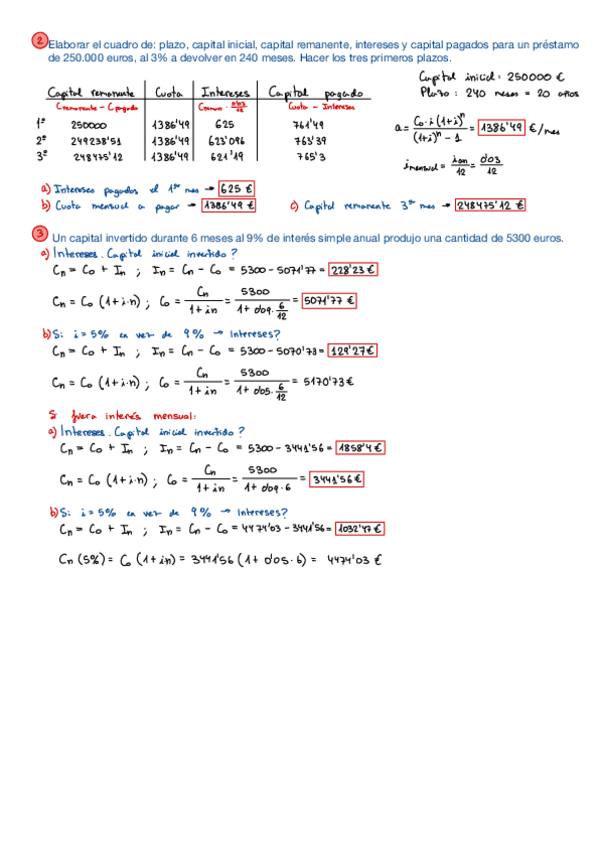 2 Elaborar el cuadro de: plazo, capital inicial, capital remanente, intereses y capital pagados para un préstamo
de 250.000 euros, al 3% a devolver en 240 meses. Hacer los tres primeros plazos.
Capital inicial: 250000 €
Plazo: 240 meses = 20 años
Capital remanente | Cuota | Intereses | Capital pagado
Cremanente - Cpagado | Crem · 0'03/12 | Cuota - Intereses
1º 250000 | 1386'49 | 625 | 761'49
2º 249238'51 | 1386'49 | 623'096 | 763'39
3º 248475'12 | 1386'49 | 621'19 | 765'3
a = Co·i (1+i)^n / (1+i)^n - 1 = 1386'49 €/mes
i mensual = ian/12 = 0'03/12
a) Intereses pagados el 1er mes → 625 €
b) Cuota mensual a pagar → 1386'49 € c) Capital remanente 3er mes → 248475'12 €
3 Un capital invertido durante 6 meses al 9% de interés simple anual produjo una cantidad de 5300 euros.
a) Intereses. Capital inicial invertido?
Cn = Co + In ; In = Cn - Co = 5300 - 5071'77 = 228'23 €
Cn = Co (1+i·n) ; Co = Cn / 1+in = 5300 / 1+0'09·6/12 = 5071'77 €
b) Si i=5% en vez de 9% → Intereses?
Cn = Co + In ; In = Cn - Co = 5300 - 5070'73 = 129'27 €
Cn = Co (1+i·n) ; Co = Cn / 1+in = 5300 / 1+0'05·6/12 = 5170'73 €
Si fuera interés mensual:
a) Intereses. Capital inicial invertido?
Cn = Co + In ; In = Cn - Co = 5300 - 3441'56 = 1858'4 €
Cn = Co (1+i·n) ; Co = Cn / 1+in = 5300 / 1+0'09·6 = 3441'56 €
b) Si i=5% en vez de 9% → Intereses?
Cn = Co + In ; In = Cn - Co = 4474'03 - 3441'56 = 1032'47 €
Cn (5%) = Co (1+in) = 3441'56 (1+0'05·6) = 4474'03 €